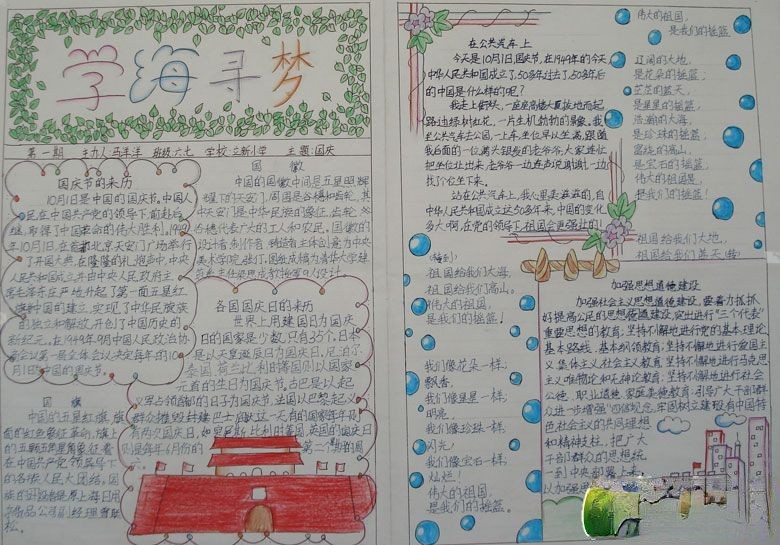 学海寻梦
第一期 主办人马丰洋 班级六七 学校:立新小学 主题:国庆
国庆节的来历
10月1日是中国的国庆节。中国人
民在中国共产党的领导下前赴后
继,取得中国革命的伟大胜利。1949
年10月1日,在首都北京天安门广场举行
了开国大典,在隆隆的礼炮声中,中央
人民共和国成立并由中央人民政府主
席毛泽东庄严地升起了第一面五星红
旗。中国的建立,实现了中华民族
的独立和解放,开创了中国历史的
新纪元。在1949年,中国人民政治协
商会议第一届全体会议决定每年的10
月1日,中国的国庆节。
国旗
中国的五星红旗,旗
面的红色象征革命,旗上
的五颗五角星象征着
在中国共产党领导下
的各族人民大团结,国
旗的设计者是原上海日用
杂品公司副经理曾联
松。
国徽
中国的国徽中间是五星照耀
下的天安门,周围是谷穗和齿轮,其
中天安门是中华民族的象征,齿轮、谷
穗代表广大的工人和农民,国徽的
设计者
美术学院
各国国庆日的来历
世界上用建国日为国庆
日的国家是少数,只有35个,日本
是以天皇诞辰日为国庆日,尼泊尔
泰国、荷兰比利时等国则以国家
元首的生日为国庆节。古巴是以起
义军占领首都的日子为国庆节,法国以巴黎起义
群众摧毁封建巴士底狱这一天,有的国家每年只
有两次国庆日,
则是每年6月份的第二个星期
在公共汽车上
今天是10月1日,国庆节,在1949年的今天
中华人民共和国成立了,50多年过去了,50多年后
的中国是什么样的呢?
我走上街头,一座座高楼大厦拔地而起
路边绿树红花,一片生机勃勃的景象,我
坐公共汽车去公园,一上车,坐位早以坐满,跟随
我后面的一位满头银发的老爷爷,大家连忙
把坐位让出来,老爷爷一边连声说谢谢!一边
找个位坐下来。
站在公共汽车上,我心里美滋滋的,自
中华人民共和国成立这50多年来,中国的变化
多大啊,在党的领导下,祖国会更强壮的!
伟大的祖国,
是我们的摇篮。
辽阔的大地,
是花朵的摇篮;
茫茫的蓝天,
是星星的摇篮;
浩瀚的大海,
是珍珠的摇篮;
富饶的高山,
是宝石的摇篮;
伟大的祖国,
是我们的摇篮!
祖国给我们大地,
祖国给我们蓝天(转)
(接到)
祖国给我们大海,
祖国给我们高山。
伟大的祖国,
是我们的摇篮!
我们像花朵一样:
飘香,
我们像星星一样:
明亮,
我们像珍珠一样:
闪光,
我们像宝石一样:
灿烂!
伟大的祖国,
是我们的摇篮。
加强思想道德建设
加强社会主义思想道德建设,要着力抓
好提高公民的思想道德建设,突出进行“三个代表”
重要思想的教育,坚持不懈地进行党的基本理论、
基本路线、基本纲领教育,坚持不懈地进行爱国主
义、集体主义、社会主义教育,坚持不懈地进行马克思
主义唯物论和无神论教育,坚持不懈地进行社会
公德、职业道德、家庭美德教育,引导广大干部群
众进一步增强“四信”观念,牢固树立建设有中国特
色社会主义的共同理想
和精神支柱,把广大
干部群众的思想统
一到中央部署上来,
以加强思想